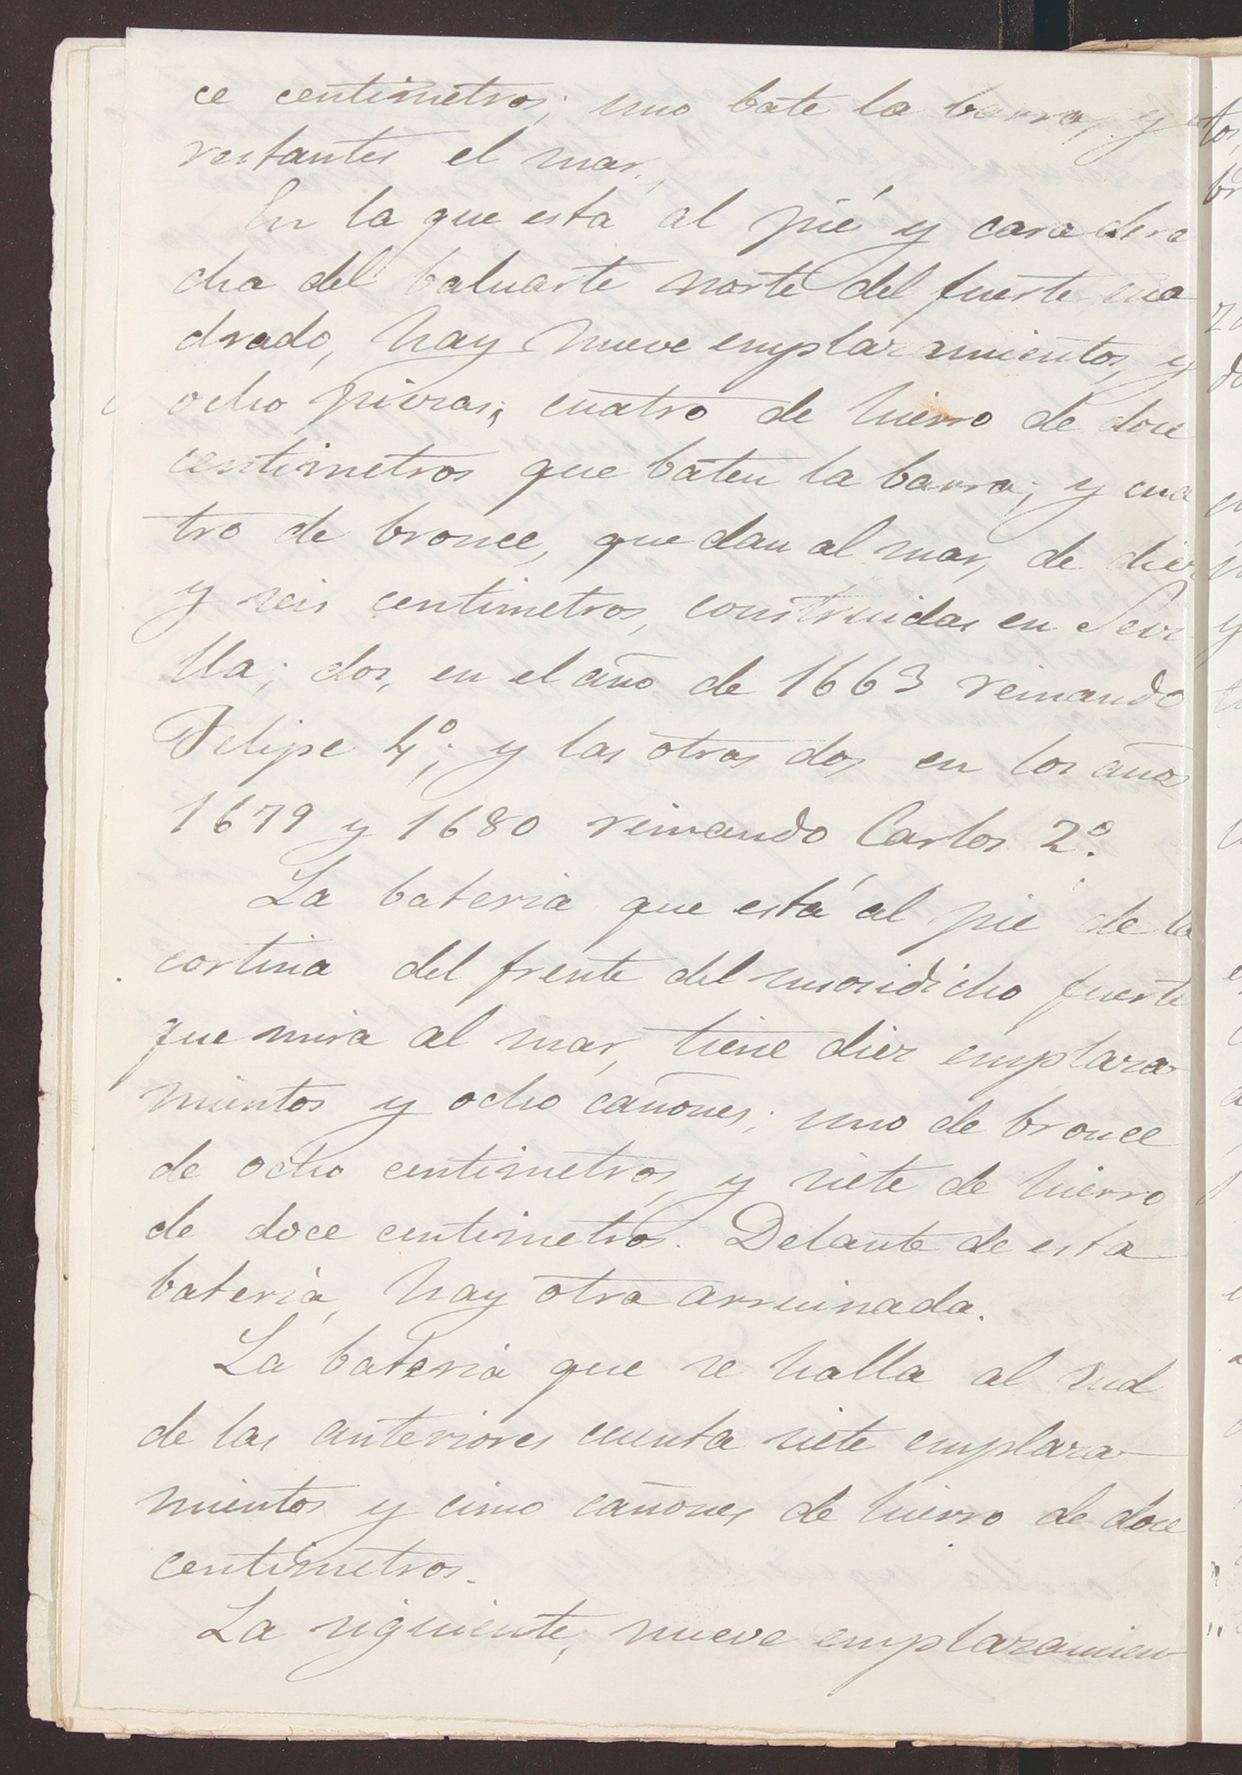 ce centimetros; uno bate la barra, y
restantes el mar.
En la que está al pié y cara dere
cha del baluarte norte del fuerte cua
drado, hay nueve emplazamientos, y
ocho piezas; cuatro de hierro de doce
centimetros que baten la barra; y cua
tro de bronce, que dan al mar, de diez
y seis centimetros, construidas en Sevi
lla; dos, en el año de 1663 reinando
Felipe 4º; y las otras dos en los años
1679 y 1680 reinando Carlos 2º.
La bateria que está al pié de la
cortina del frente del susodicho fuerte
que mira al mar, tiene diez emplaza
mientos y ocho cañones; uno de bronce
de ocho centimetros, y siete de hierro
de doce centimetros. Delante de esta
bateria, hay otra arruinada.
La bateria que se halla al sud
de las anteriores cuenta siete emplaza-
mientos y cinco cañones de hierro de doce
centimetros.
La siguiente, nueve emplazamien